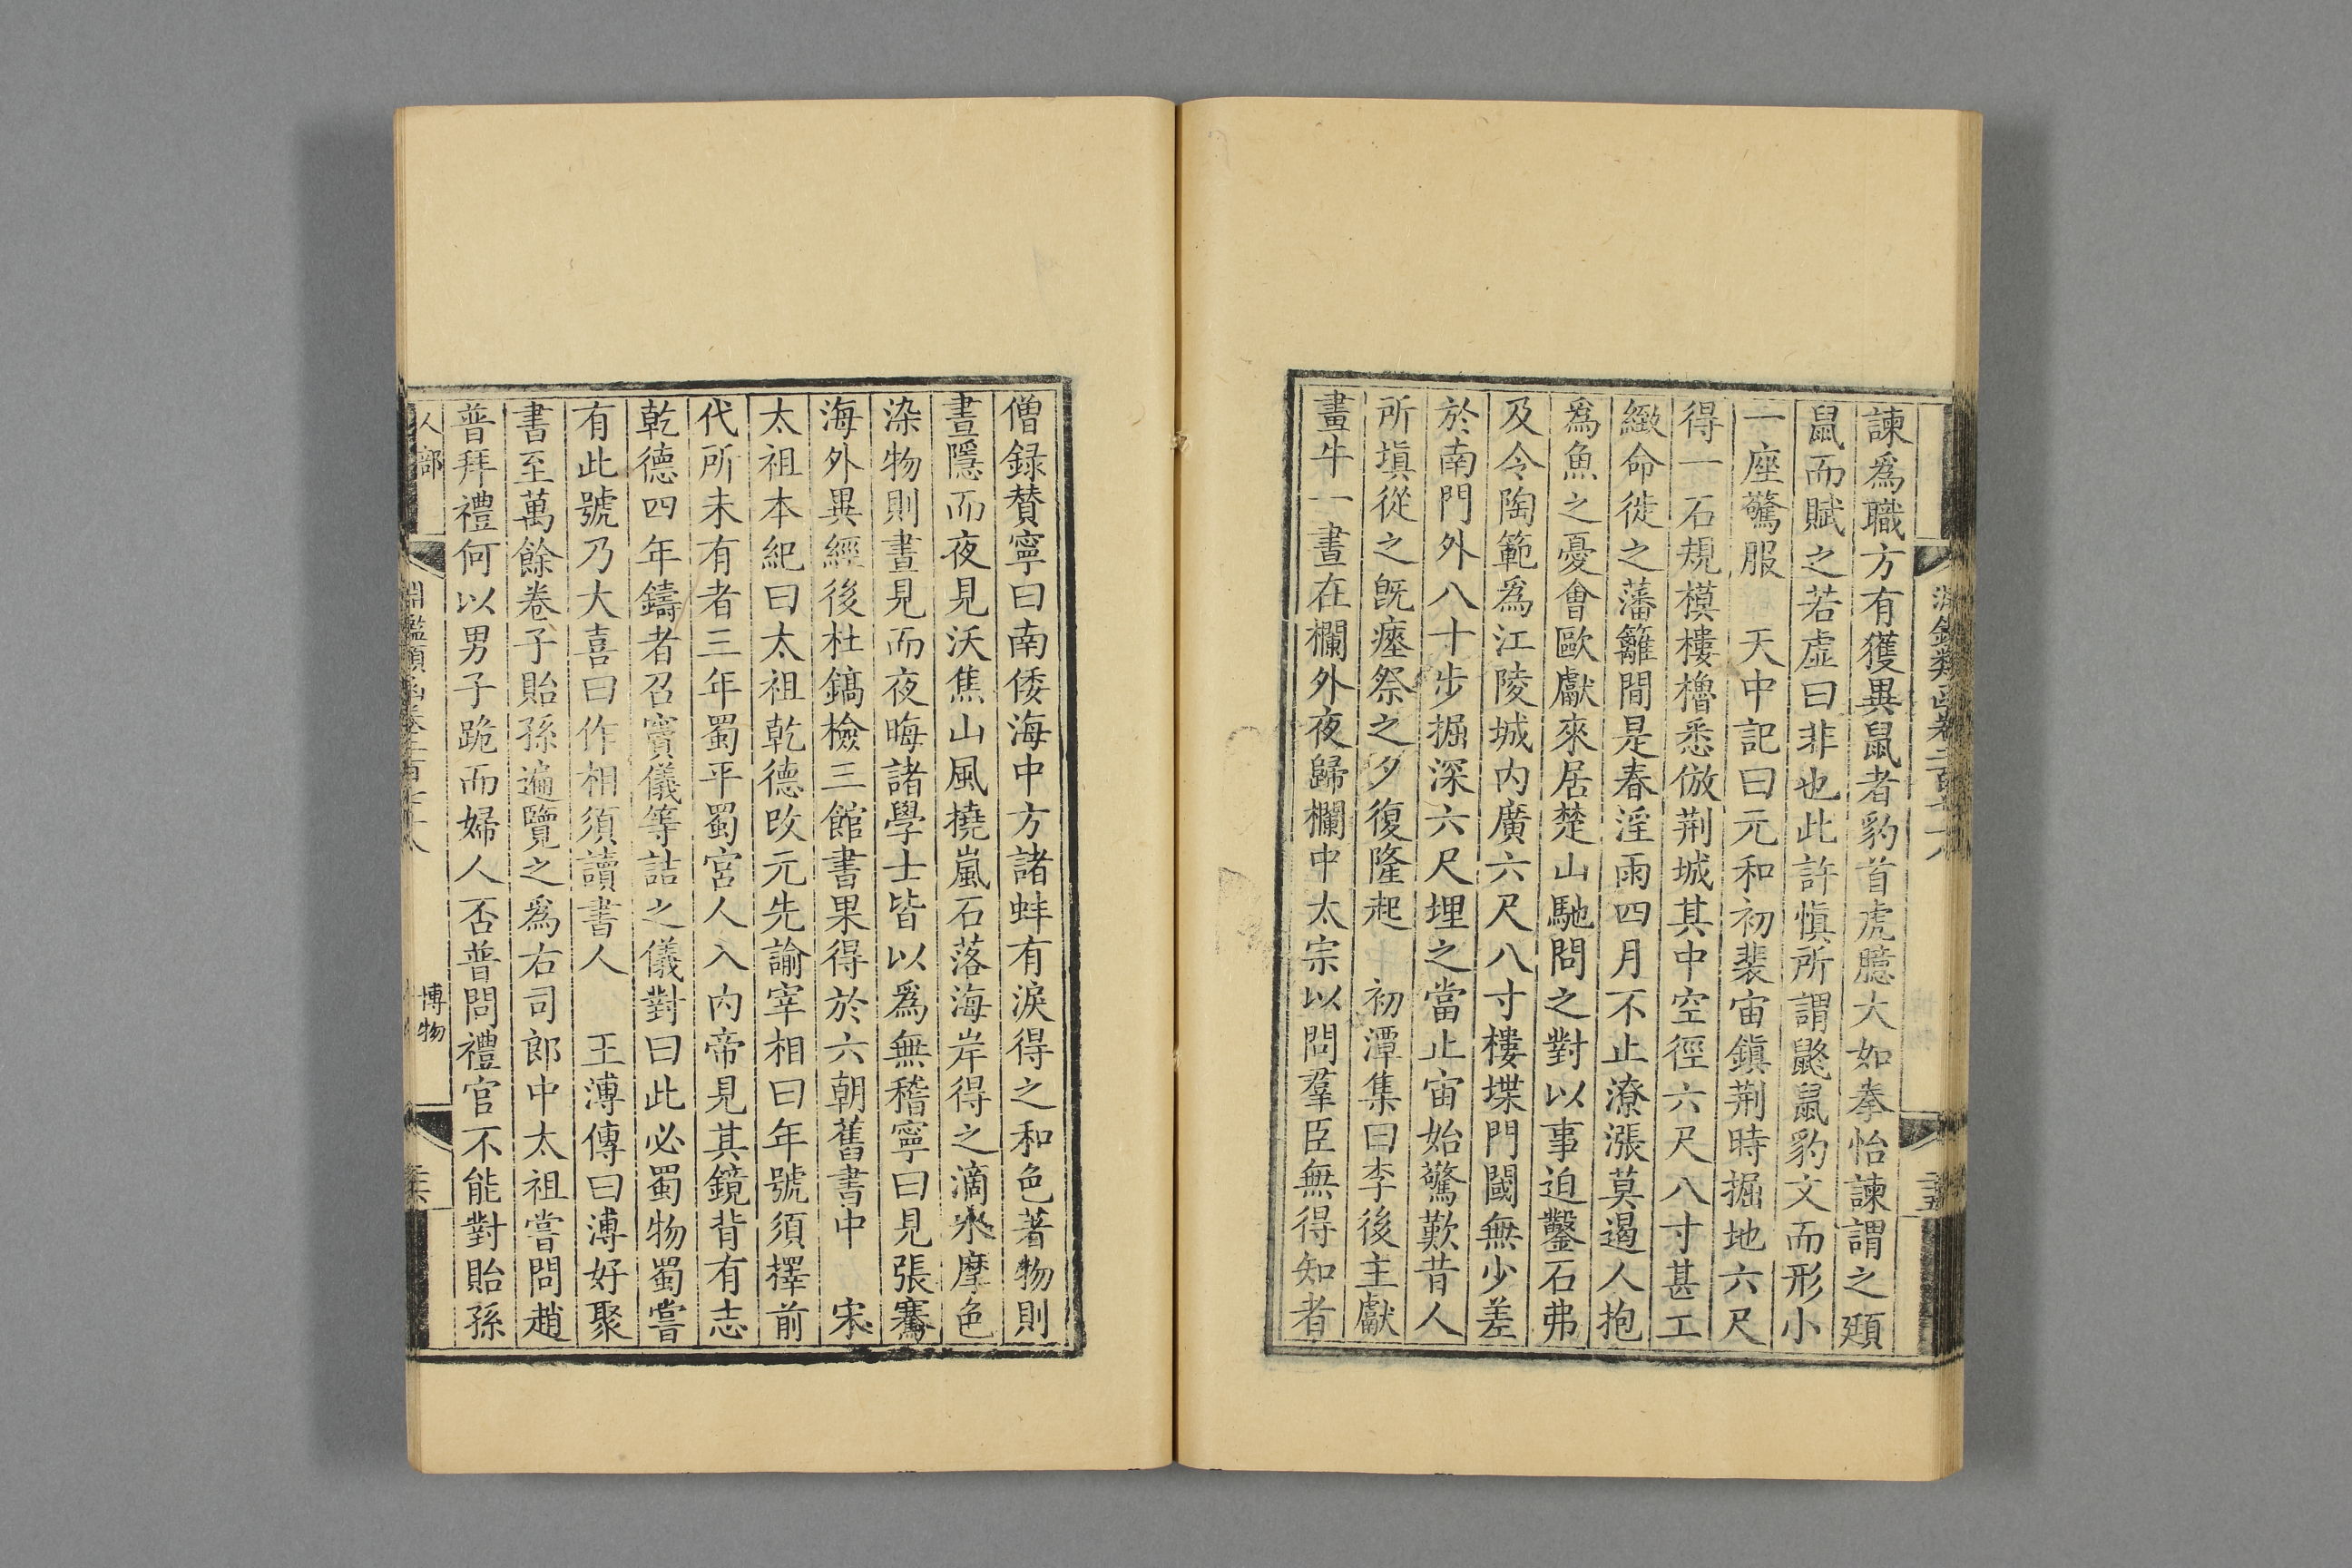 諫爲職方有獲異鼠者豹首虎臆大如拳怡諫謂之䫉
鼠而賦之若虛曰非也此許愼所謂鼨鼠豹文而形小
一座驚服 天中記曰元和初裴宙鎭荆時掘地六尺
得一石規模樓櫓悉倣荆城其中空徑六尺八寸甚工
緻命徙之藩籬間是春淫雨四月不止潦漲莫遏人抱
爲魚之憂會歐獻來居楚山馳問之對以事迫鑿石弗
及令陶範爲江陵城内廣六尺八寸樓堞門闉無少差
於南門外八十步掘深六尺埋之當止宙始驚歎昔人
所塡從之旣瘞祭之夕復隆起 初潭集曰李後主獻
畫牛一晝在欄外夜歸欄中太宗以問羣臣無得知者
僧録賛寧曰南倭海中方諸蚌有淚得之和色著物則
晝隱而夜見沃焦山風撓嵐石落海岸得之滴水摩色
染物則晝見而夜晦諸學士皆以爲無稽寧曰見張騫
海外異經後杜鎬檢三館書果得於六朝舊書中 宋
太祖本紀曰太祖乾德改元先諭宰相曰年號須擇前
代所未有者三年蜀平蜀宮人入内帝見其鏡背有志
乾德四年鑄者召竇儀等詰之儀對曰此必蜀物蜀嘗
有此號乃大喜曰作相須讀書人 王溥傳曰溥好聚
書至萬餘卷子貽孫遍覽之爲右司郎中太祖嘗問趙
普拜禮何以男子跪而婦人否普問禮官不能對貽孫
人部
淵鑑類函卷三百二十八
博物